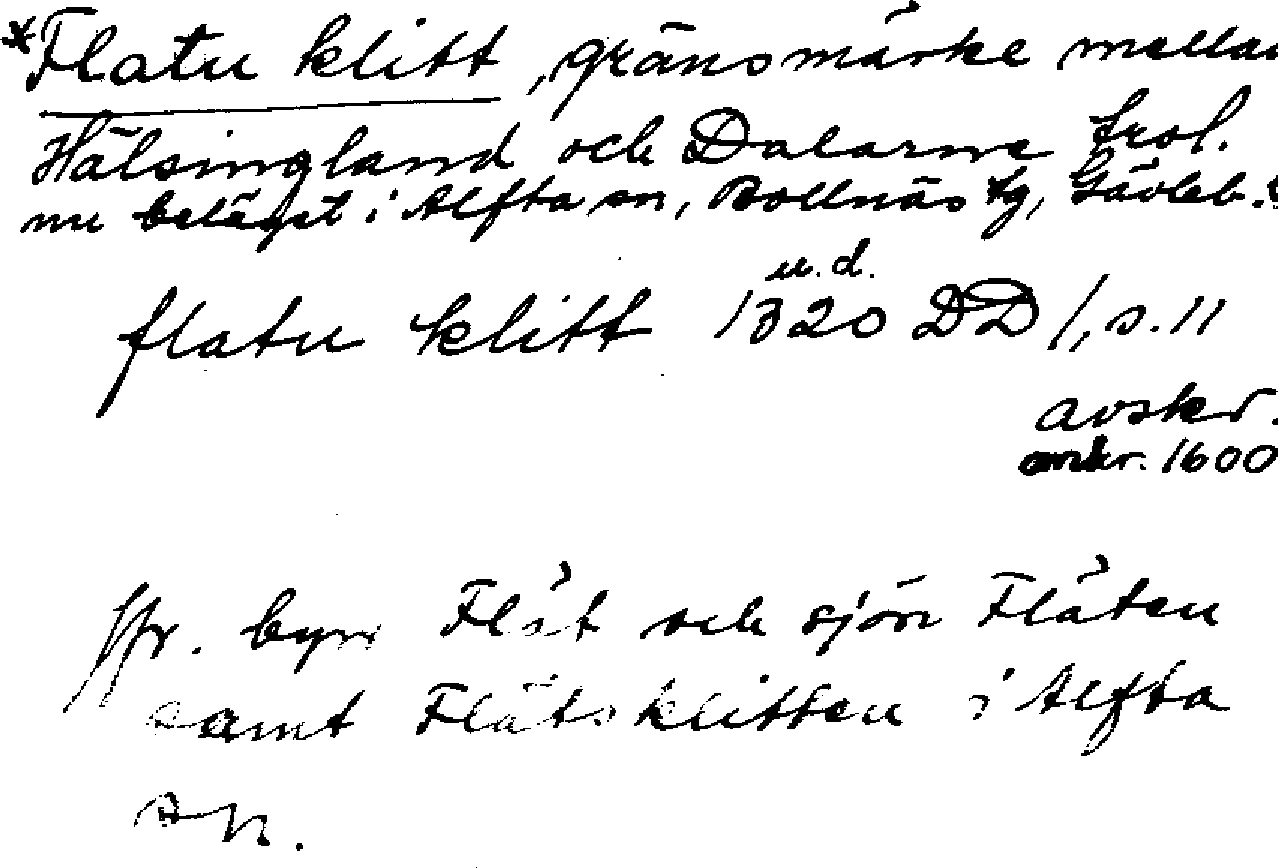 *Flatu klitt, gränsmärke mellan
Hälsingland och Dalarne trol.
nu beläget i Alfta sn, Bollnäs tg, Gävleb.
u.d.
flatu klitt 1320 DD 1, s. 11
avskr.
omkr. 1600
Jfr. byn Flät och sjön Fläten
samt Flätsklitten i Alfta
sn.